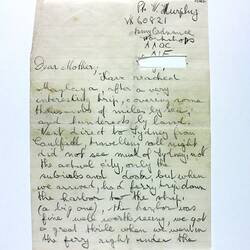 Pte W. Murphy
VX 60821
Army Ordnance
Workshops
AAOC
AIF
Dear Mother,
Have reached
Malaya, after a very
interesting trip, covering some
thousands of miles by sea,
and hundreds by land.
Went direct to Sydney from
Caulfield, travelling all night
did not see much of Sydney, not
the actual city, only the
suburbs and docks but when
we arrived, had a ferry trip down
the harbor to the ship
(a big one), the harbor was
fine well worth seeing, we got
a great thrill when we went in
the ferry right under the